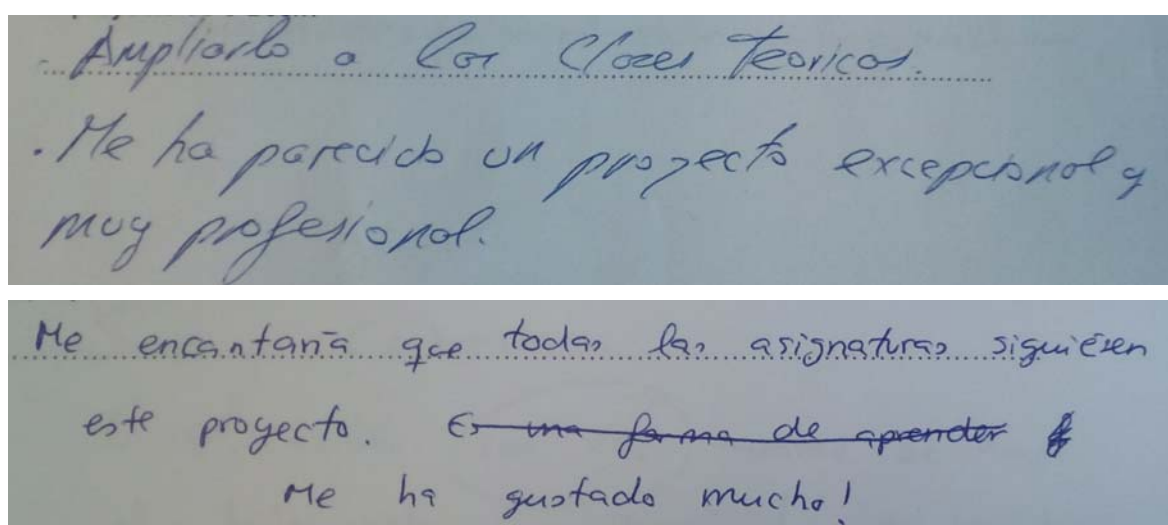 - Ampliarlo a las clases teoricas.
. Me ha parecido un proyecto excepcional y
muy profesional.
Me encantaría que todas las asignaturas siguiesen
este proyecto. Es una forma de aprender
Me ha gustado mucho!